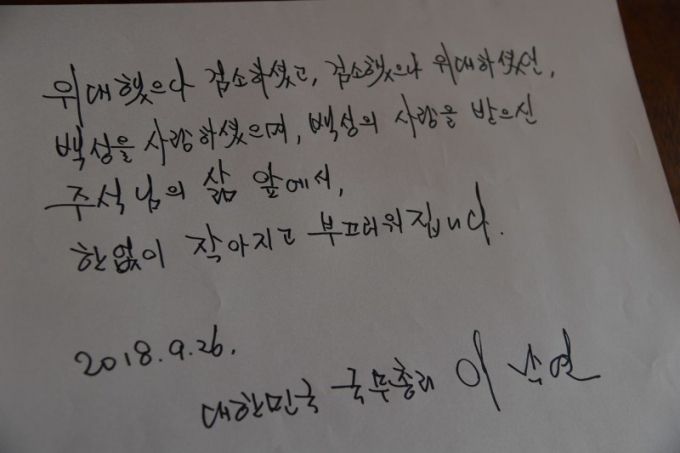 위대했으나 검소하셨고, 검소했으나 위대하셨언,
백성을 사랑하셨으며, 백성의 사랑을 받으신
주석님의 삶 앞에서,
한없이 작아지고 부끄러워집니다.
2018.9.26.
대한민국 국무총리 이낙연